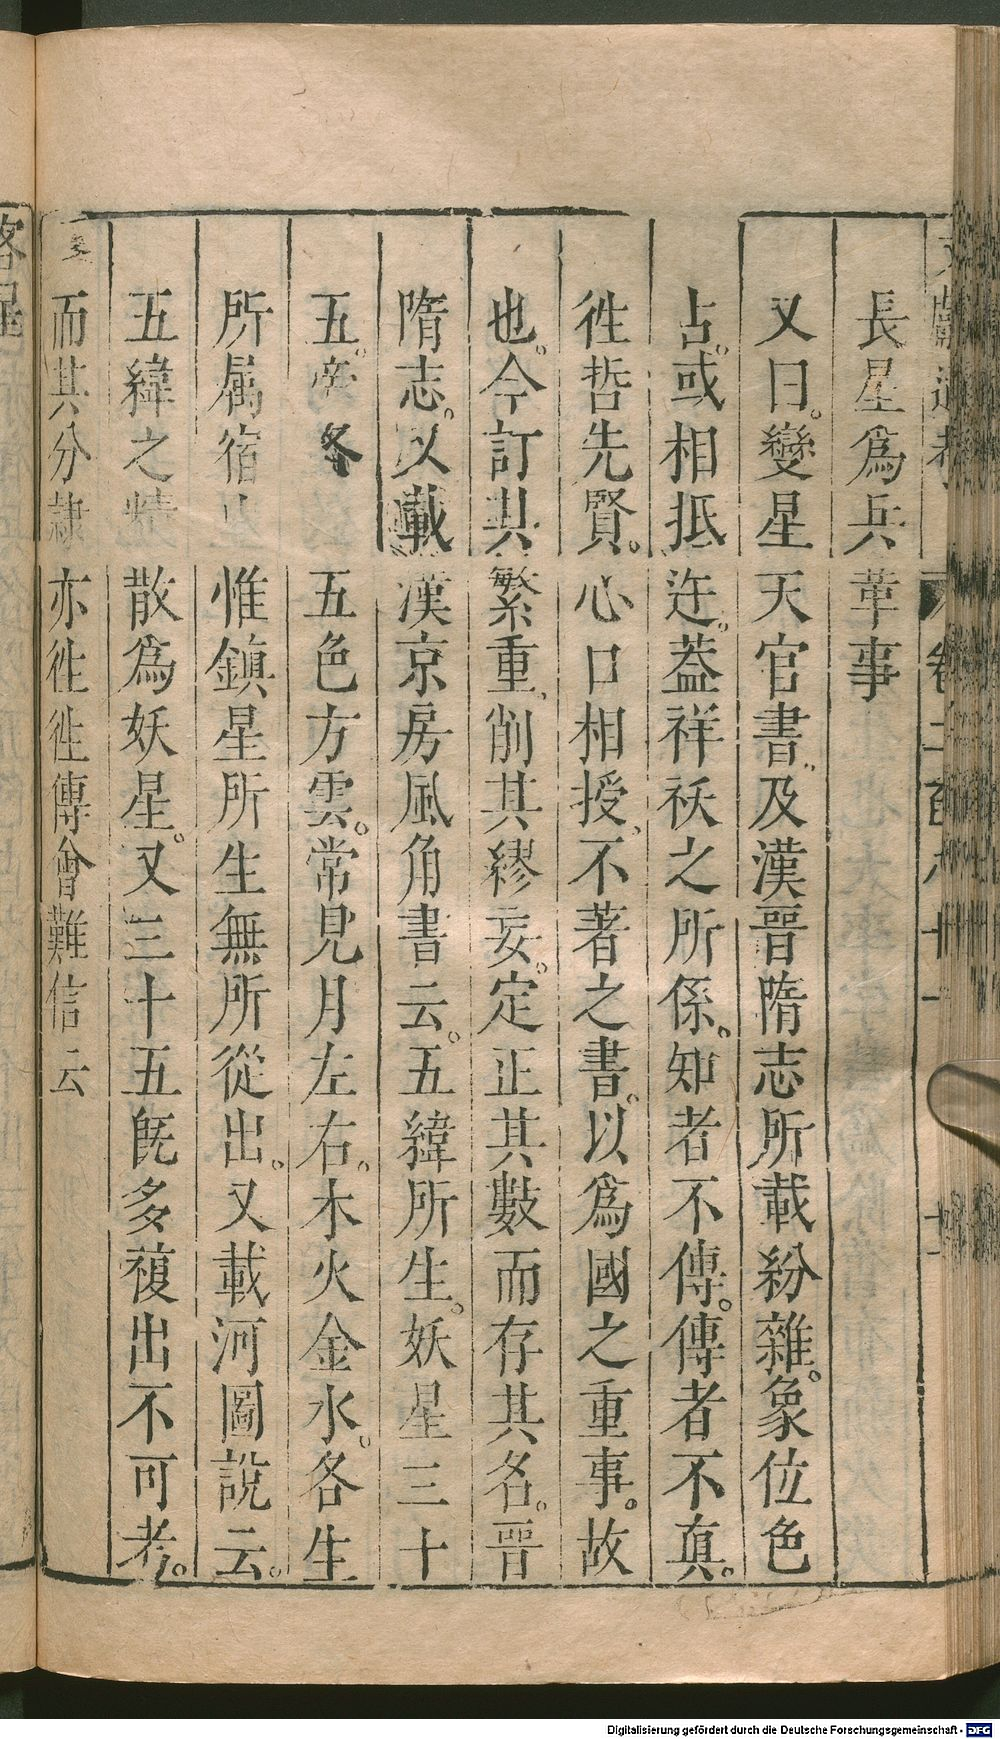 長星爲兵革事
又曰。變星天官書。及漢晉隋志所載紛雜。象位色
占。或相抵迕。葢祥祅之所係。知者不傳。傳者不真。
徃哲先賢。心口相授、不著之書。以爲國之重事。故
也。今訂其繁重、削其繆妄。定正其數而存其名。晉
隋志。以載漢京房風角書云。五緯所生。妖星三十
五。各五色方雲。常見月左右。木火金水。各生
所属宿惟鎮星所生無所從出。又載河圖說云。
五緯之精散爲妖星。又三十五旣多複出不可考。
而其分隷亦徃徃傳會難信云
客星
Digitalisierung gefördert durch die Deutsche Forschungsgemeinschaft - DFG